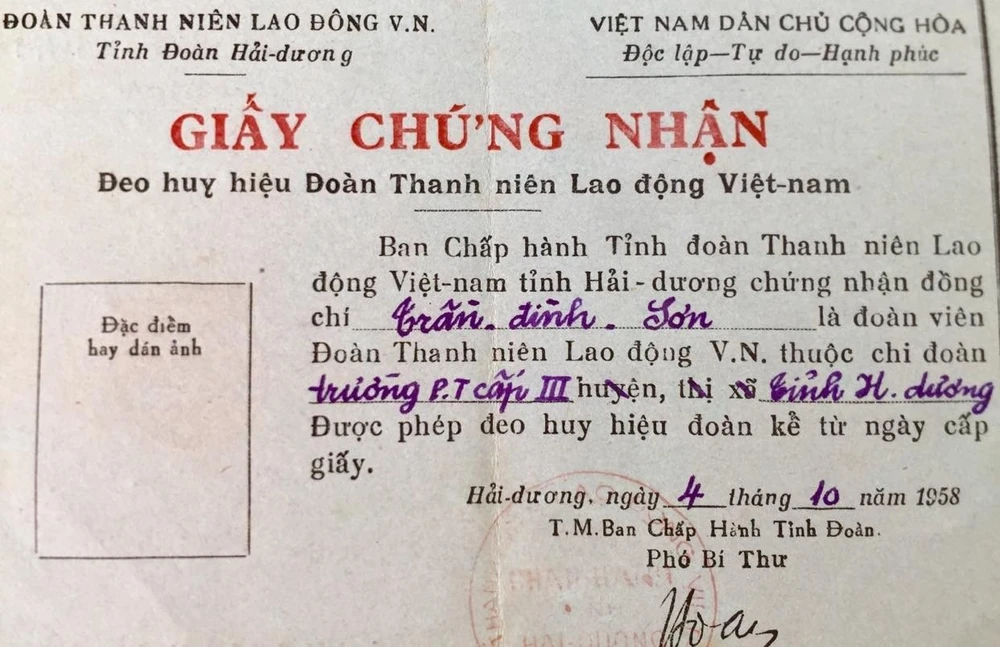 ĐOÀN THANH NIÊN LAO ĐÔNG V.N.
Tỉnh Đoàn Hải-dương
VIỆT NAM DÂN CHỦ CỘNG HÒA
Độc lập—Tự do—Hạnh phúc
GIẤY CHỨNG NHẬN
Đeo huy hiệu Đoàn Thanh niên Lao động Việt-nam
Ban Chấp hành Tỉnh đoàn Thanh niên Lao
động Việt-nam tỉnh Hải-dương chứng nhận đồng
chí Trần đình Sơn là đoàn viên
Đoàn Thanh niên Lao động V.N. thuộc chi đoàn
trường P.T cấp III huyện, thị xã tỉnh H. dương
Được phép đeo huy hiệu đoàn kể từ ngày cấp
giấy.
Đặc điểm
hay dán ảnh
Hải-dương, ngày 4 tháng 10 năm 1958
T.M.Ban Chấp Hành Tỉnh Đoàn.
Phó Bí Thư